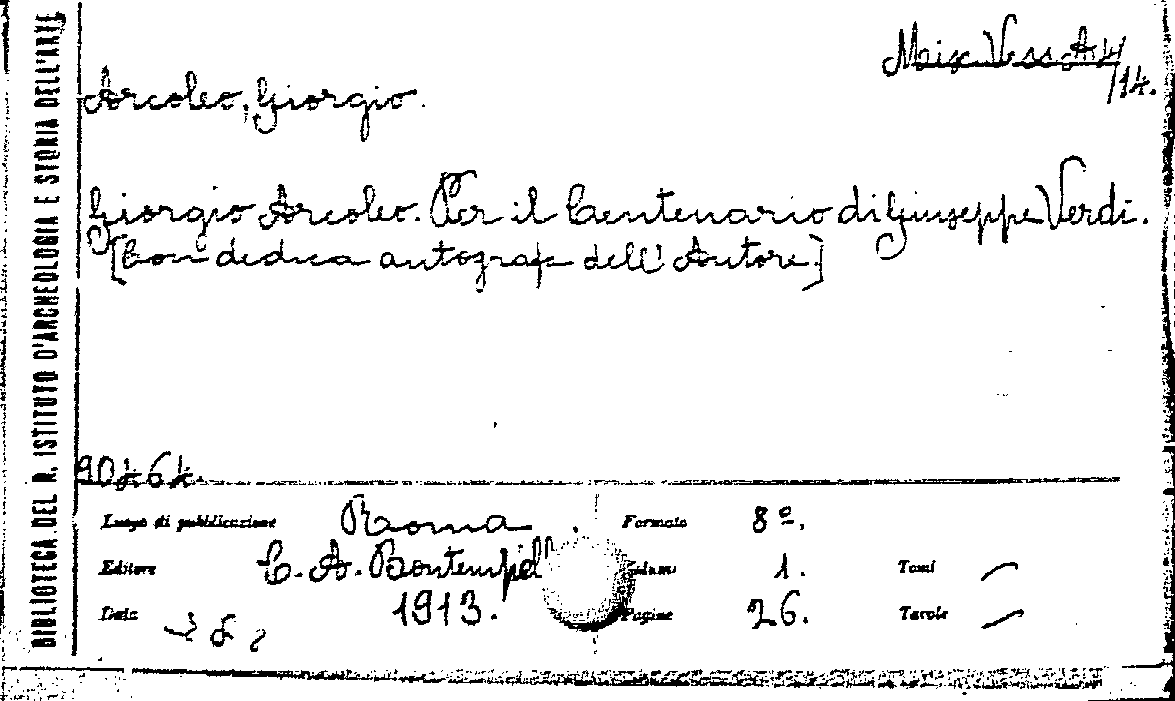 BIBLIOTECA DEL R. ISTITUTO D'ARCHEOLOGIA E STORIA DELL'ARTE
Misc. Vess A 4/14.
Arcoleo, Giorgio.
Giorgio Arcoleo. Per il Centenario di Giuseppe Verdi.
[Con dedica autografa dell'Autore.]
Luogo di pubblicazione Roma. Formato 8º.
Editore C. A. Bontempelli Volumi 1. Tomi —
Data 1913. Pagine 26. Tavole —